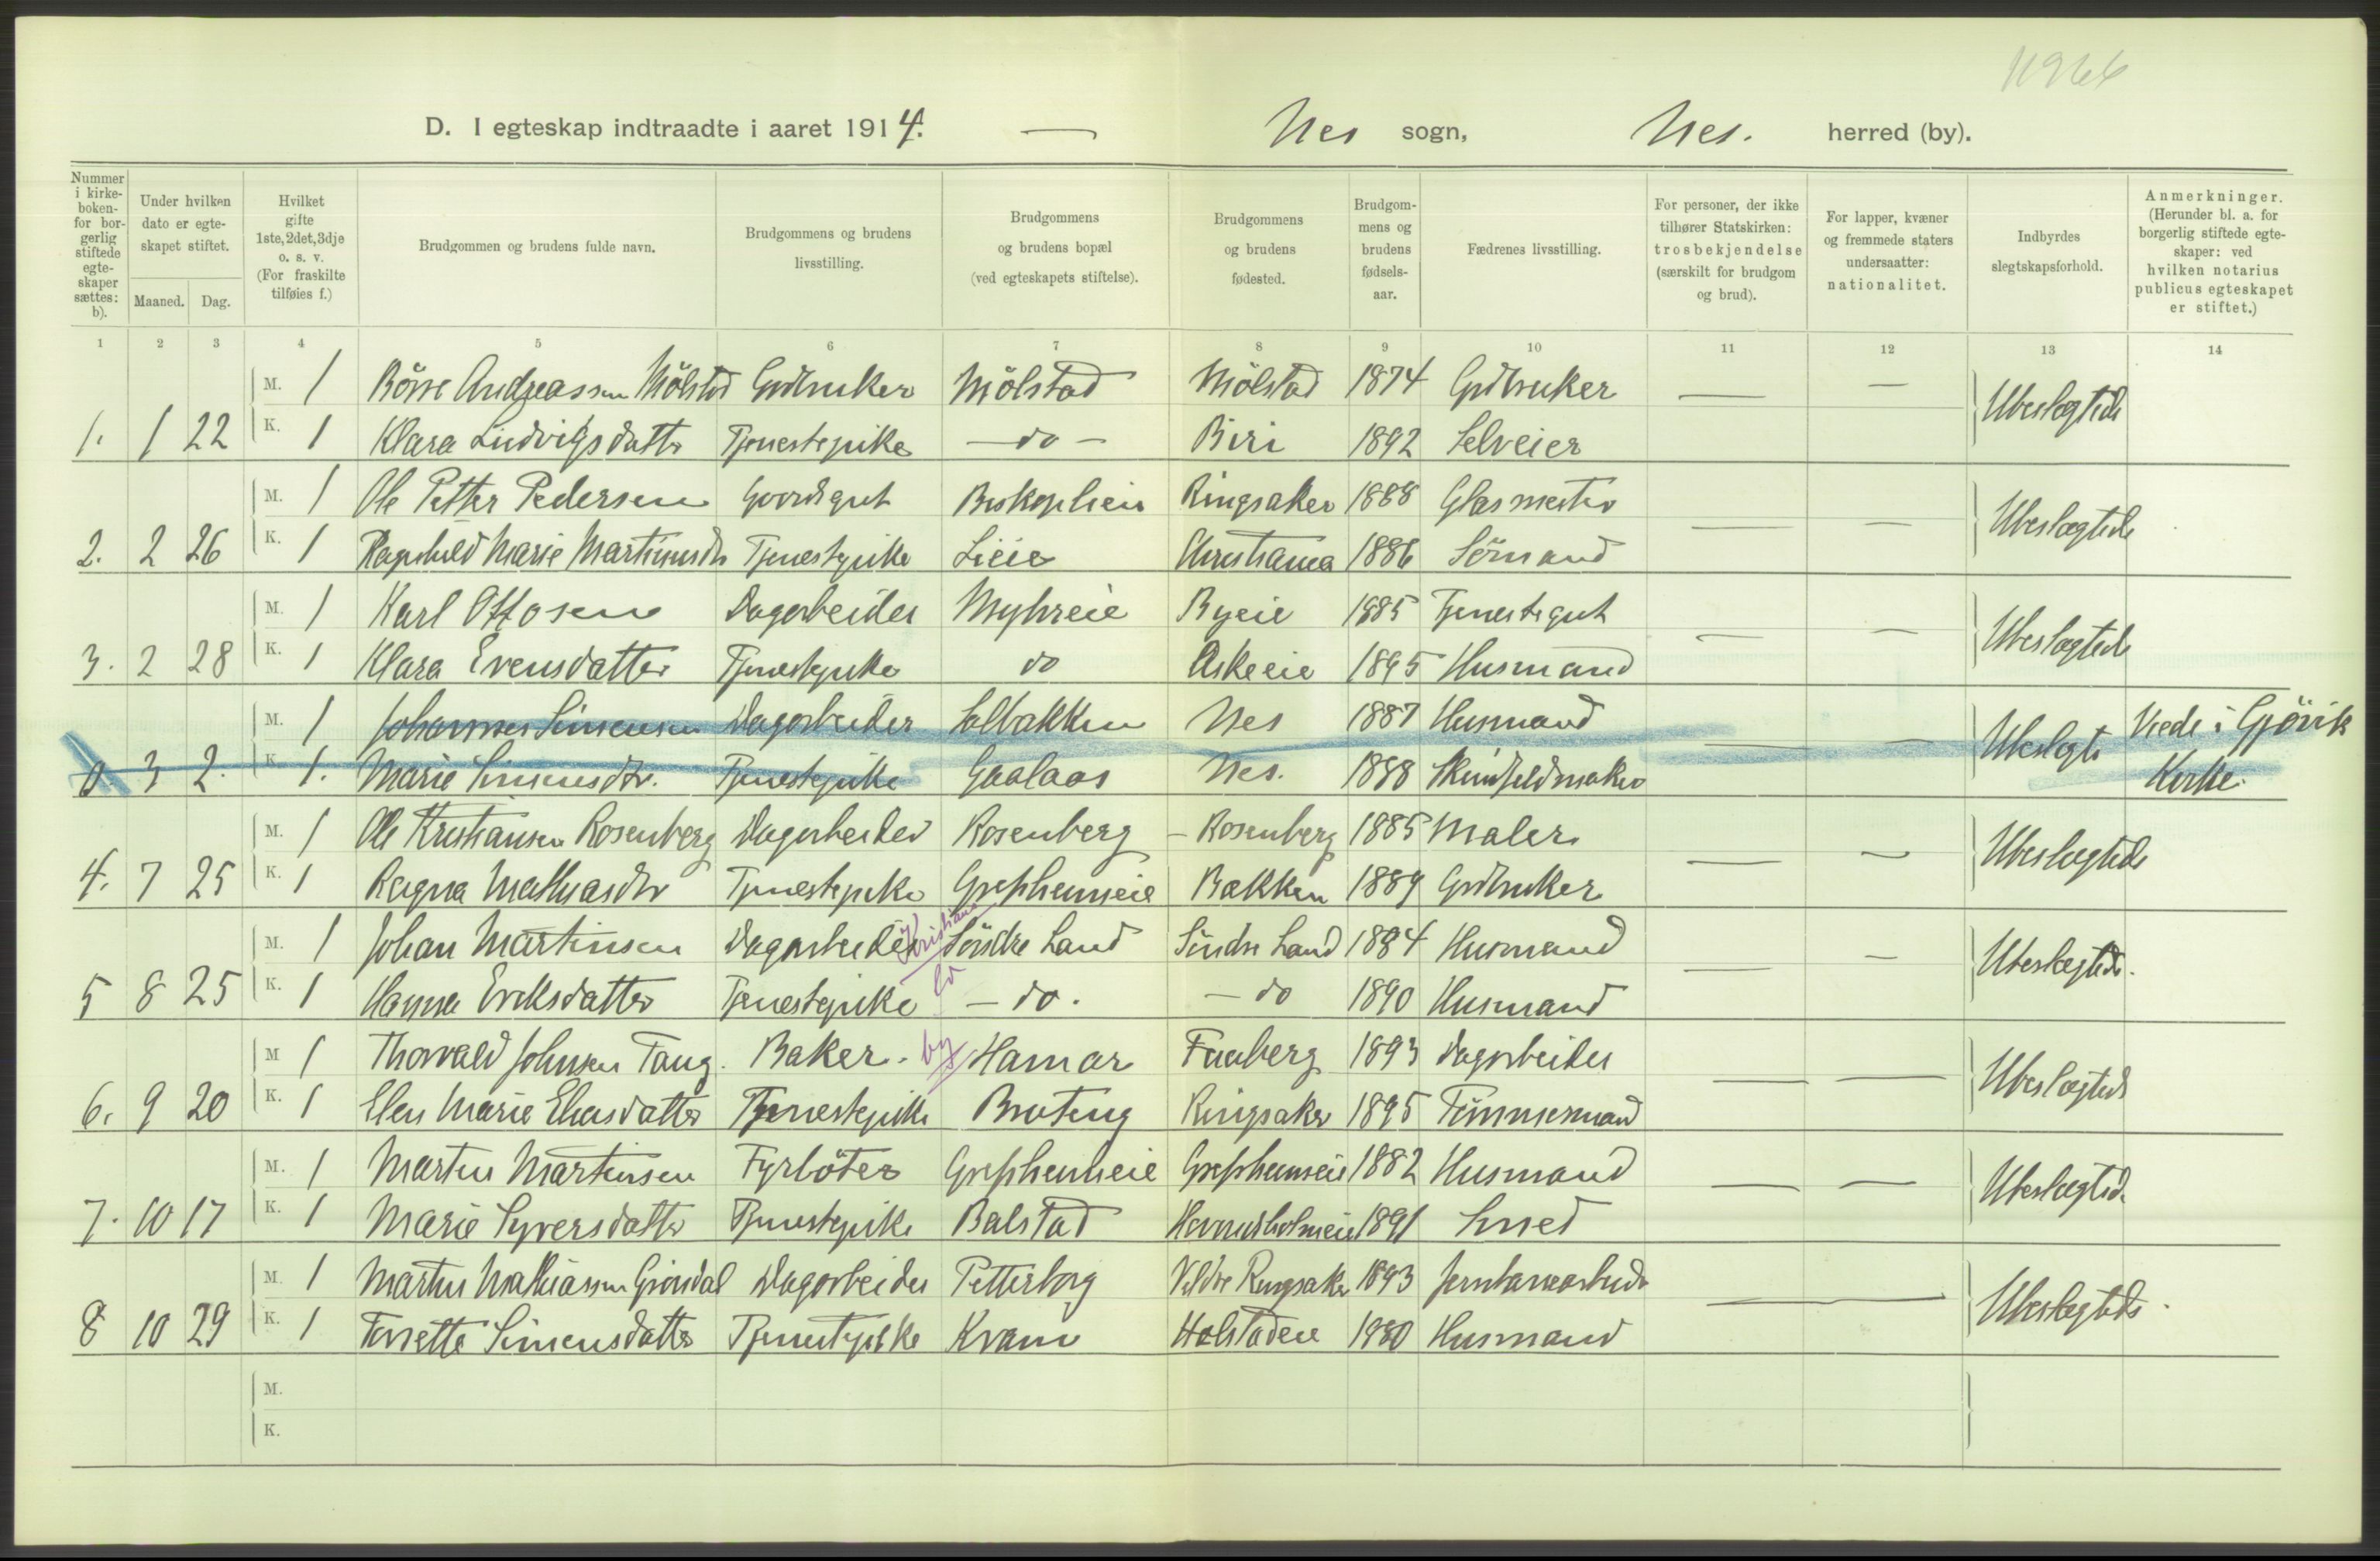 11966
D. I egteskap indtraadte i aaret 1914. — Nes sogn, Nes. herred (by).
Nummer i kirkeboken- for borgerlig stiftede egteskaper sættes: b).
Under hvilken dato er egteskapet stiftet.
Maaned. Dag.
Hvilket gifte 1ste, 2det, 3dje o. s. v. (For fraskilte tilføies f.)
Brudgommen og brudens fulde navn.
Brudgommens og brudens livsstilling.
Brudgommens og brudens bopæl (ved egteskapets stiftelse).
Brudgommens og brudens fødested.
Brudgommens og brudens fødselsaar.
Fædrenes livsstilling.
For personer, der ikke tilhører Statskirken: trosbekjendelse (særskilt for brudgom og brud).
For lapper, kvæner og fremmede staters undersaatter: nationalitet.
Indbyrdes slegtskapsforhold.
Anmerkninger. (Herunder bl. a. for borgerlig stiftede egteskaper: ved hvilken notarius publicus egteskapet er stiftet.)
1 2 3 4 5 6 7 8 9 10 11 12 13 14
M. 1 Börre Andreassen Mölstad Grdbruker Mölstad Mölstad 1874 Grdbruker — — Ubeslegtede
1. 1 22 K. 1 Klara Ludvigsdatter Tjenestepike — do — Biri 1892 Selveier
M. 1 Ole Petter Pedersen Gaardsgut Biskoplieie Ringsaker 1888 Glasmester — — Ubeslegtede
2. 2 26 K. 1 Ragnhild Marie Martinusdtr Tjenestepike Lieie Christiania 1886 Sömand
M. 1 Karl Ottosen Dagarbeider Myhreie Byeie 1885 Tjenestegut — — Ubeslegtede
3. 2 28 K. 1 Klara Evensdatter Tjenestepike do Askeeie 1895 Husmand
M. 1 Johannes Simensen Dagarbeider Solbakken Nes 1887 Husmand — — Ubeslegte Viede i Gjövik
0. 3 2. K. 1. Marie Simensdtr. Tjenestepike Gaalaas Nes. 1888 Skindfeldmaker Kirke.
M. 1 Ole Kristiansen Rosenberg Dagarbeider Rosenberg – Rosenberg 1885 Maler — — Ubeslegtede
4. 7 25 K. 1 Ragna Mathiasdtr Tjenestepike Grefsheimeie Bakken 1889 Grdbruker
Kristians
M. 1 Johan Martinsen Dagarbeider Söndre Land Söndre Land 1884 Husmand — — Ubeslegtede.
5 8 25 K. 1 Hanna Eriksdatter Tjenestepike — do. — do 1890 Husmand
M 1 Thorvald Johnsen Taug. Baker. by Hamar Faaberg 1893 Dagarbeider — — Ubeslegtede
6. 9 20 K. 1 Elen Marie Eliasdatter Tjenestepike Bruteng Ringsaker 1895 Tömmermand
M. 1 Martin Martinsen Fyrböter Grefsheimeie Grefsheimeie 1882 Husmand — — Ubeslegtede
7. 10 17 K. 1 Marie Syversdatter Tjenestepike Balstad 1891 Smed
M. 1 Martin Mathiassen Gröndal Dagarbeider Petterborg Veldre Ringsaker 1893 Jernbanearbeider — Ubeslegtede.
8 10 29 K. 1 Simensdatter Tjenestepike Kvam Holstadeie 1880 Husmand
M.
K.